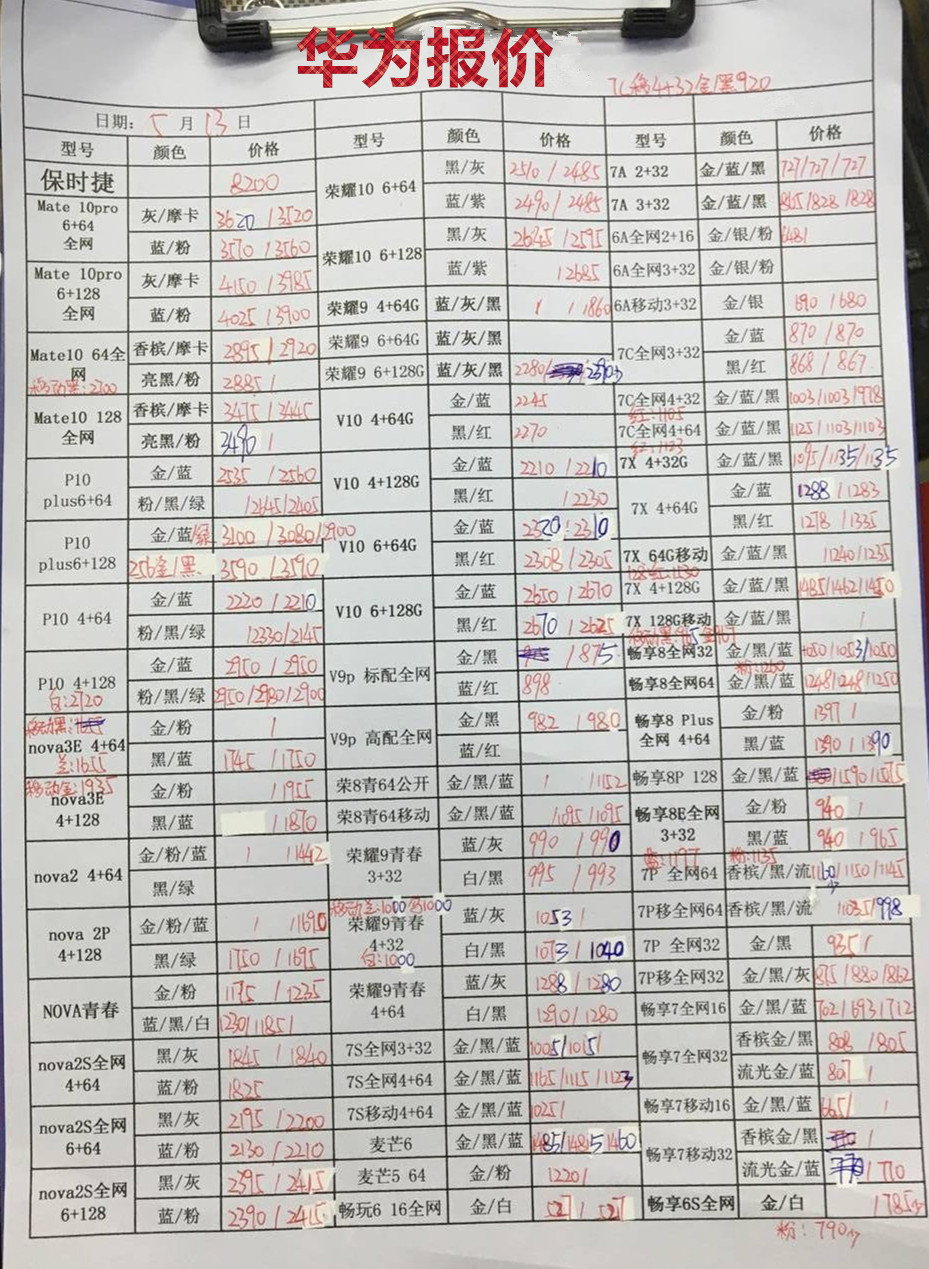 华为报价
7C移4+32金/黑920
日期: 5 月 13 日
型号 颜色 价格 型号 颜色 价格 型号 颜色 价格
保时捷 8200 荣耀10 6+64 黑/灰 2510 / 2485 7A 2+32 金/蓝/黑 727/727/727
Mate 10pro 6+64 全网 灰/摩卡 3620 / 3520 蓝/紫 2490 / 2485 7A 3+32 金/蓝/黑 865/828/828
蓝/粉 3570 / 3560 荣耀10 6+128 黑/灰 2645 / 2595 6A全网2+16 金/银/粉 648/
Mate 10pro 6+128 全网 灰/摩卡 4150 / 3985 蓝/紫 / 2685 6A全网3+32 金/银/粉
蓝/粉 4025 / 3900 荣耀9 4+64G 蓝/灰/黑 / / 1860 6A移动3+32 金/银 690 / 680
Mate10 64全网 香槟/摩卡 2895 / 2920 荣耀9 6+64G 蓝/灰/黑 7C全网3+32 金/蓝 870 / 870
移动黑:2700 亮黑/粉 2885 / 荣耀9 6+128G 蓝/灰/黑 2280/ 黑/红 868 / 867
Mate10 128全网 香槟/摩卡 3475 / 3445 V10 4+64G 金/蓝 2245 7C全网4+32 金/蓝/黑 1003/1003/978
红:1105
亮黑/粉 3490 / 黑/红 2270 7C全网4+64 金/蓝/黑 1125/1103/1103
红:1123
P10 plus6+64 金/蓝 2535 / 2560 V10 4+128G 金/蓝 2210 / 2210 7X 4+32G 金/蓝/黑 1095/1135/1135
粉/黑/绿 / 2645/2405 黑/红 / 2230 7X 4+64G 金/蓝 1288 / 1283
P10 plus6+128 金/蓝/绿 3100 / 3080/2900 V10 6+64G 金/蓝 2320 / 2310 黑/红 1278 / 1335
256金/黑 3590 / 3590 黑/红 2308 / 2305 7X 64G移动 金/蓝/黑 /1240/1235
P10 4+64 金/蓝 2220 / 2210 V10 6+128G 金/蓝 2650 / 2670 7X 4+128G 金/蓝/黑 1485/1462/1450
粉/黑/绿 /2330/2145 黑/红 2670 / 2625 7X 128G移动 金/蓝/黑 /
P10 4+128 金/蓝 2950 / 2950 V9p 标配全网 金/黑 / 875 畅享8全网32 金/黑/蓝 1050/1053/1050
白:2720 粉/黑/绿 2950/2980/2900 蓝/红 898 畅享8全网64 金/黑/蓝 1248/1248/1250
粉:1260
nova3E 4+64 金/粉 / V9p 高配全网 金/黑 982 / 980 畅享8 Plus 全网 4+64 金/粉 1397 /
兰:1655 黑/蓝 1745 / 1750 蓝/红 黑/蓝 1390 / 1390
移动金:1935
nova3E 4+128 金/粉 / 1955 荣8青64公开 金/黑/蓝 / /1152 畅享8P 128 金/黑/蓝 /1590/1575
黑/蓝 / 1870 荣8青64移动 金/黑/蓝 /1095 /1095 畅享8E全网 3+32 金/粉 940 /
nova2 4+64 金/粉/蓝 / /1442 荣耀9青春 3+32 蓝/灰 990 / 990 黑/蓝 940 / 965
蓝:1177 粉:1135
黑/绿 白/黑 995 / 993 7P 全网64 香槟/黑/流 1160/1150/1145
移动兰:1000
nova 2P 4+128 金/粉/蓝 / /1690 荣耀9青春 4+32 蓝/灰 1053 / 7P移全网64 香槟/黑/流 1035/998
黑/绿 1750 / 1695 白:1000 白/黑 1073 / 1040 7P 全网32 金/黑 935 /
NOVA青春 金/粉 1175 / 1235 荣耀9青春 4+64 蓝/灰 1288 / 1280 7P移全网32 金/黑/灰 875/880/862
蓝/黑/白 1230/1185/ 白/黑 1290 / 1280 畅享7全网16 金/黑/蓝 702/693/712
nova2S全网 4+64 黑/灰 1845 / 1840 7S全网3+32 金/黑/蓝 1005/1015/ 畅享7全网32 香槟金/黑 808 / 805
蓝/粉 1825 7S全网4+64 金/黑/蓝 1165/1115/1123 流光金/蓝 807 /
nova2S全网 6+64 黑/灰 2195 / 2200 7S移动4+64 金/黑/蓝 1025/ 畅享7移动16 金/黑/蓝 665/ /
蓝/粉 2130 / 2210 麦芒6 金/黑/蓝 1485/1485/1460 畅享7移动32 香槟金/黑 /
nova2S全网 6+128 黑/灰 2395 / 2415 麦芒5 64 金/粉 1220/ 流光金/蓝 / 710
蓝/粉 2390 / 2415 畅玩6 16全网 金/白 527 / 527 畅享6S全网 金/白 / 785
粉:790